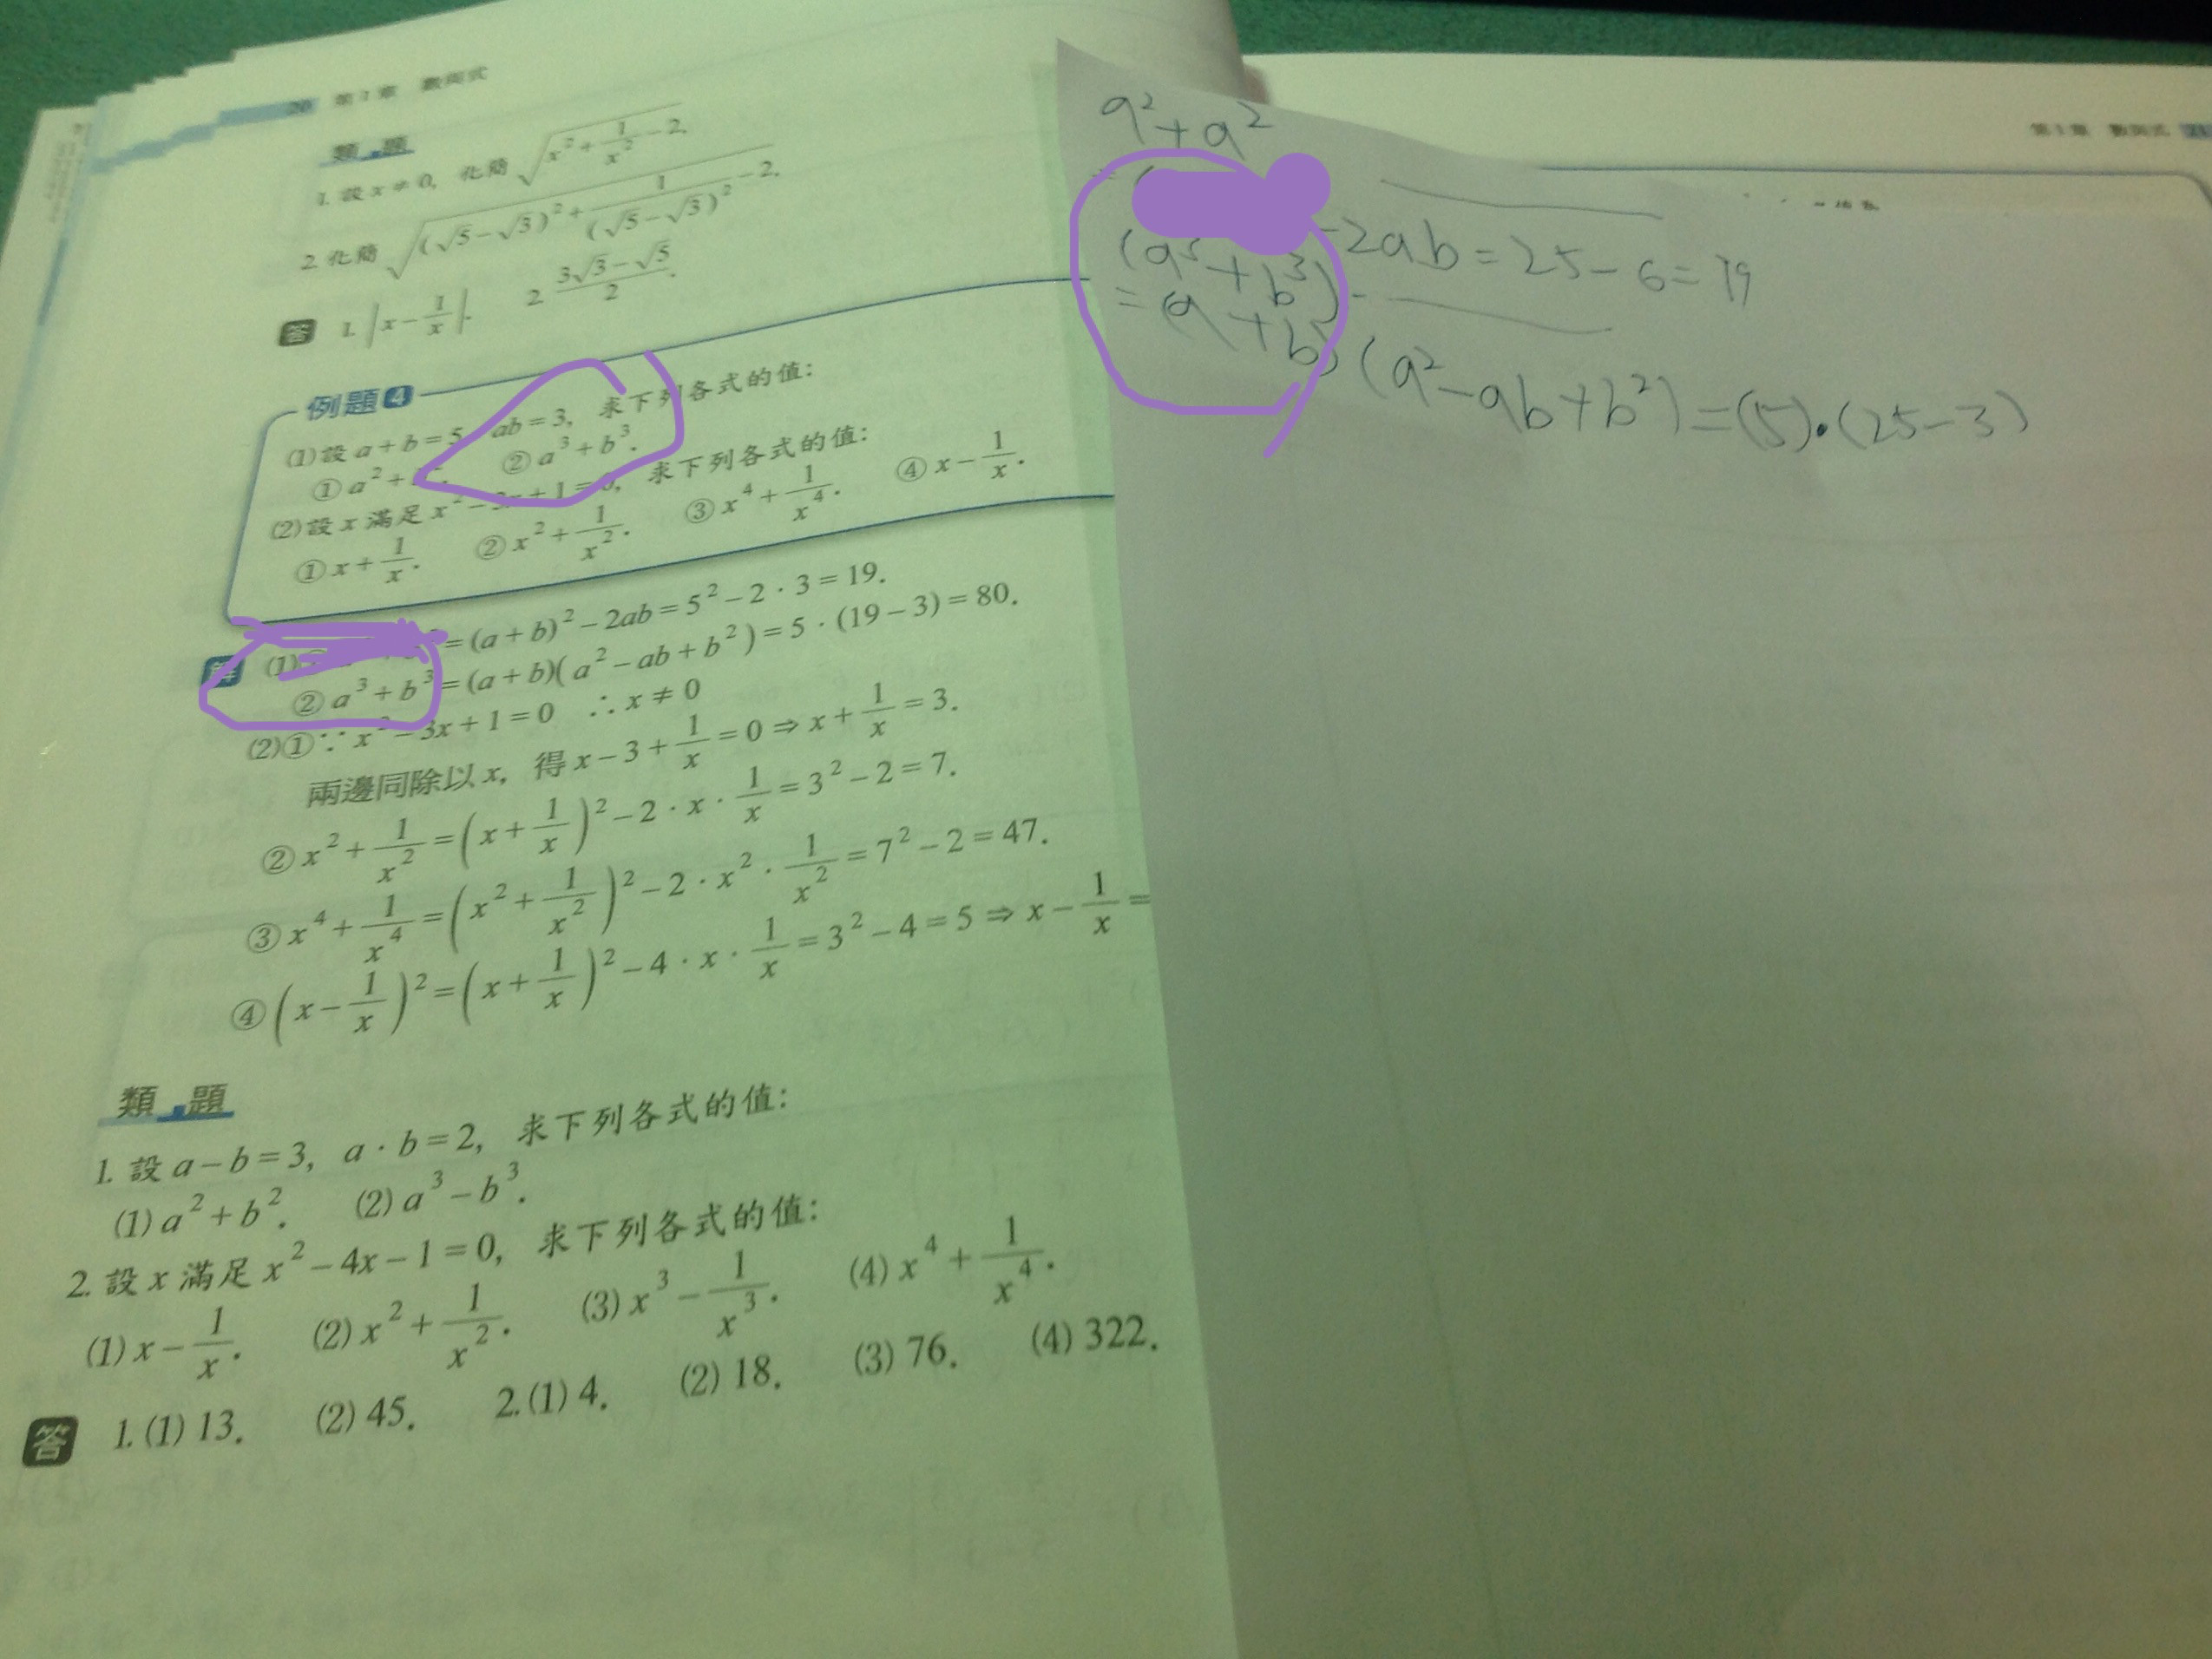 20 第1章 數與式
類題
1. 設 x≠0, 化簡 √(x²+1/x²-2).
2. 化簡 √((√5-√3)²+1/(√5-√3)²-2).
答 1. |x-1/x|. 2. (3√3-√5)/2.
例題4
(1)設 a+b=5, ab=3, 求下列各式的值:
① a²+ ② a³+b³.
(2)設 x 滿足 x²-3x+1=0, 求下列各式的值:
① x+1/x. ② x²+1/x². ③ x⁴+1/x⁴. ④ x-1/x.
解 (1) =(a+b)²-2ab=5²-2·3=19.
② a³+b³=(a+b)(a²-ab+b²)=5·(19-3)=80.
(2)①∵x²-3x+1=0 ∴x≠0
兩邊同除以 x, 得 x-3+1/x=0⇒x+1/x=3.
② x²+1/x²=(x+1/x)²-2·x·1/x=3²-2=7.
③ x⁴+1/x⁴=(x²+1/x²)²-2·x²·1/x²=7²-2=47.
④ (x-1/x)²=(x+1/x)²-4·x·1/x=3²-4=5⇒x-1/x=
類題
1. 設 a-b=3, a·b=2, 求下列各式的值:
(1) a²+b². (2) a³-b³.
2. 設 x 滿足 x²-4x-1=0, 求下列各式的值:
(1) x-1/x. (2) x²+1/x². (3) x³-1/x³. (4) x⁴+1/x⁴.
答 1. (1) 13. (2) 45. 2. (1) 4. (2) 18. (3) 76. (4) 322.
第1章 數與式 21
a²+a²
=( -2ab=25-6=19
(a³+b³)
=(a+b)(a²-ab+b²)=(5)·(25-3)